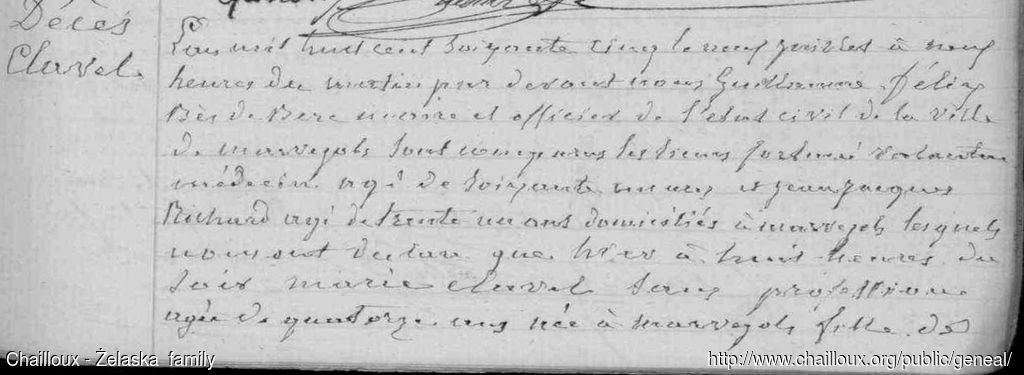 Décès
Clavel
L'an mil huit cent soixante cinq le neuf juillet à neuf
heures du matin par devant nous Guillaume Félix
Bès de Berc maire et officier de l'état civil de la ville
de marvejols sont comparus les sieurs fortuné
médecin agé de soixante ans et jean jacques
Richard agé de trente un ans domiciliés à marvejols lesquels
nous ont declaré que hier à huit heures du
soir marie clavel sans profession
agée de quatorze ans née à marvejols fille de
Chailloux - Żelaska family
http://www.chailloux.org/public/geneal/